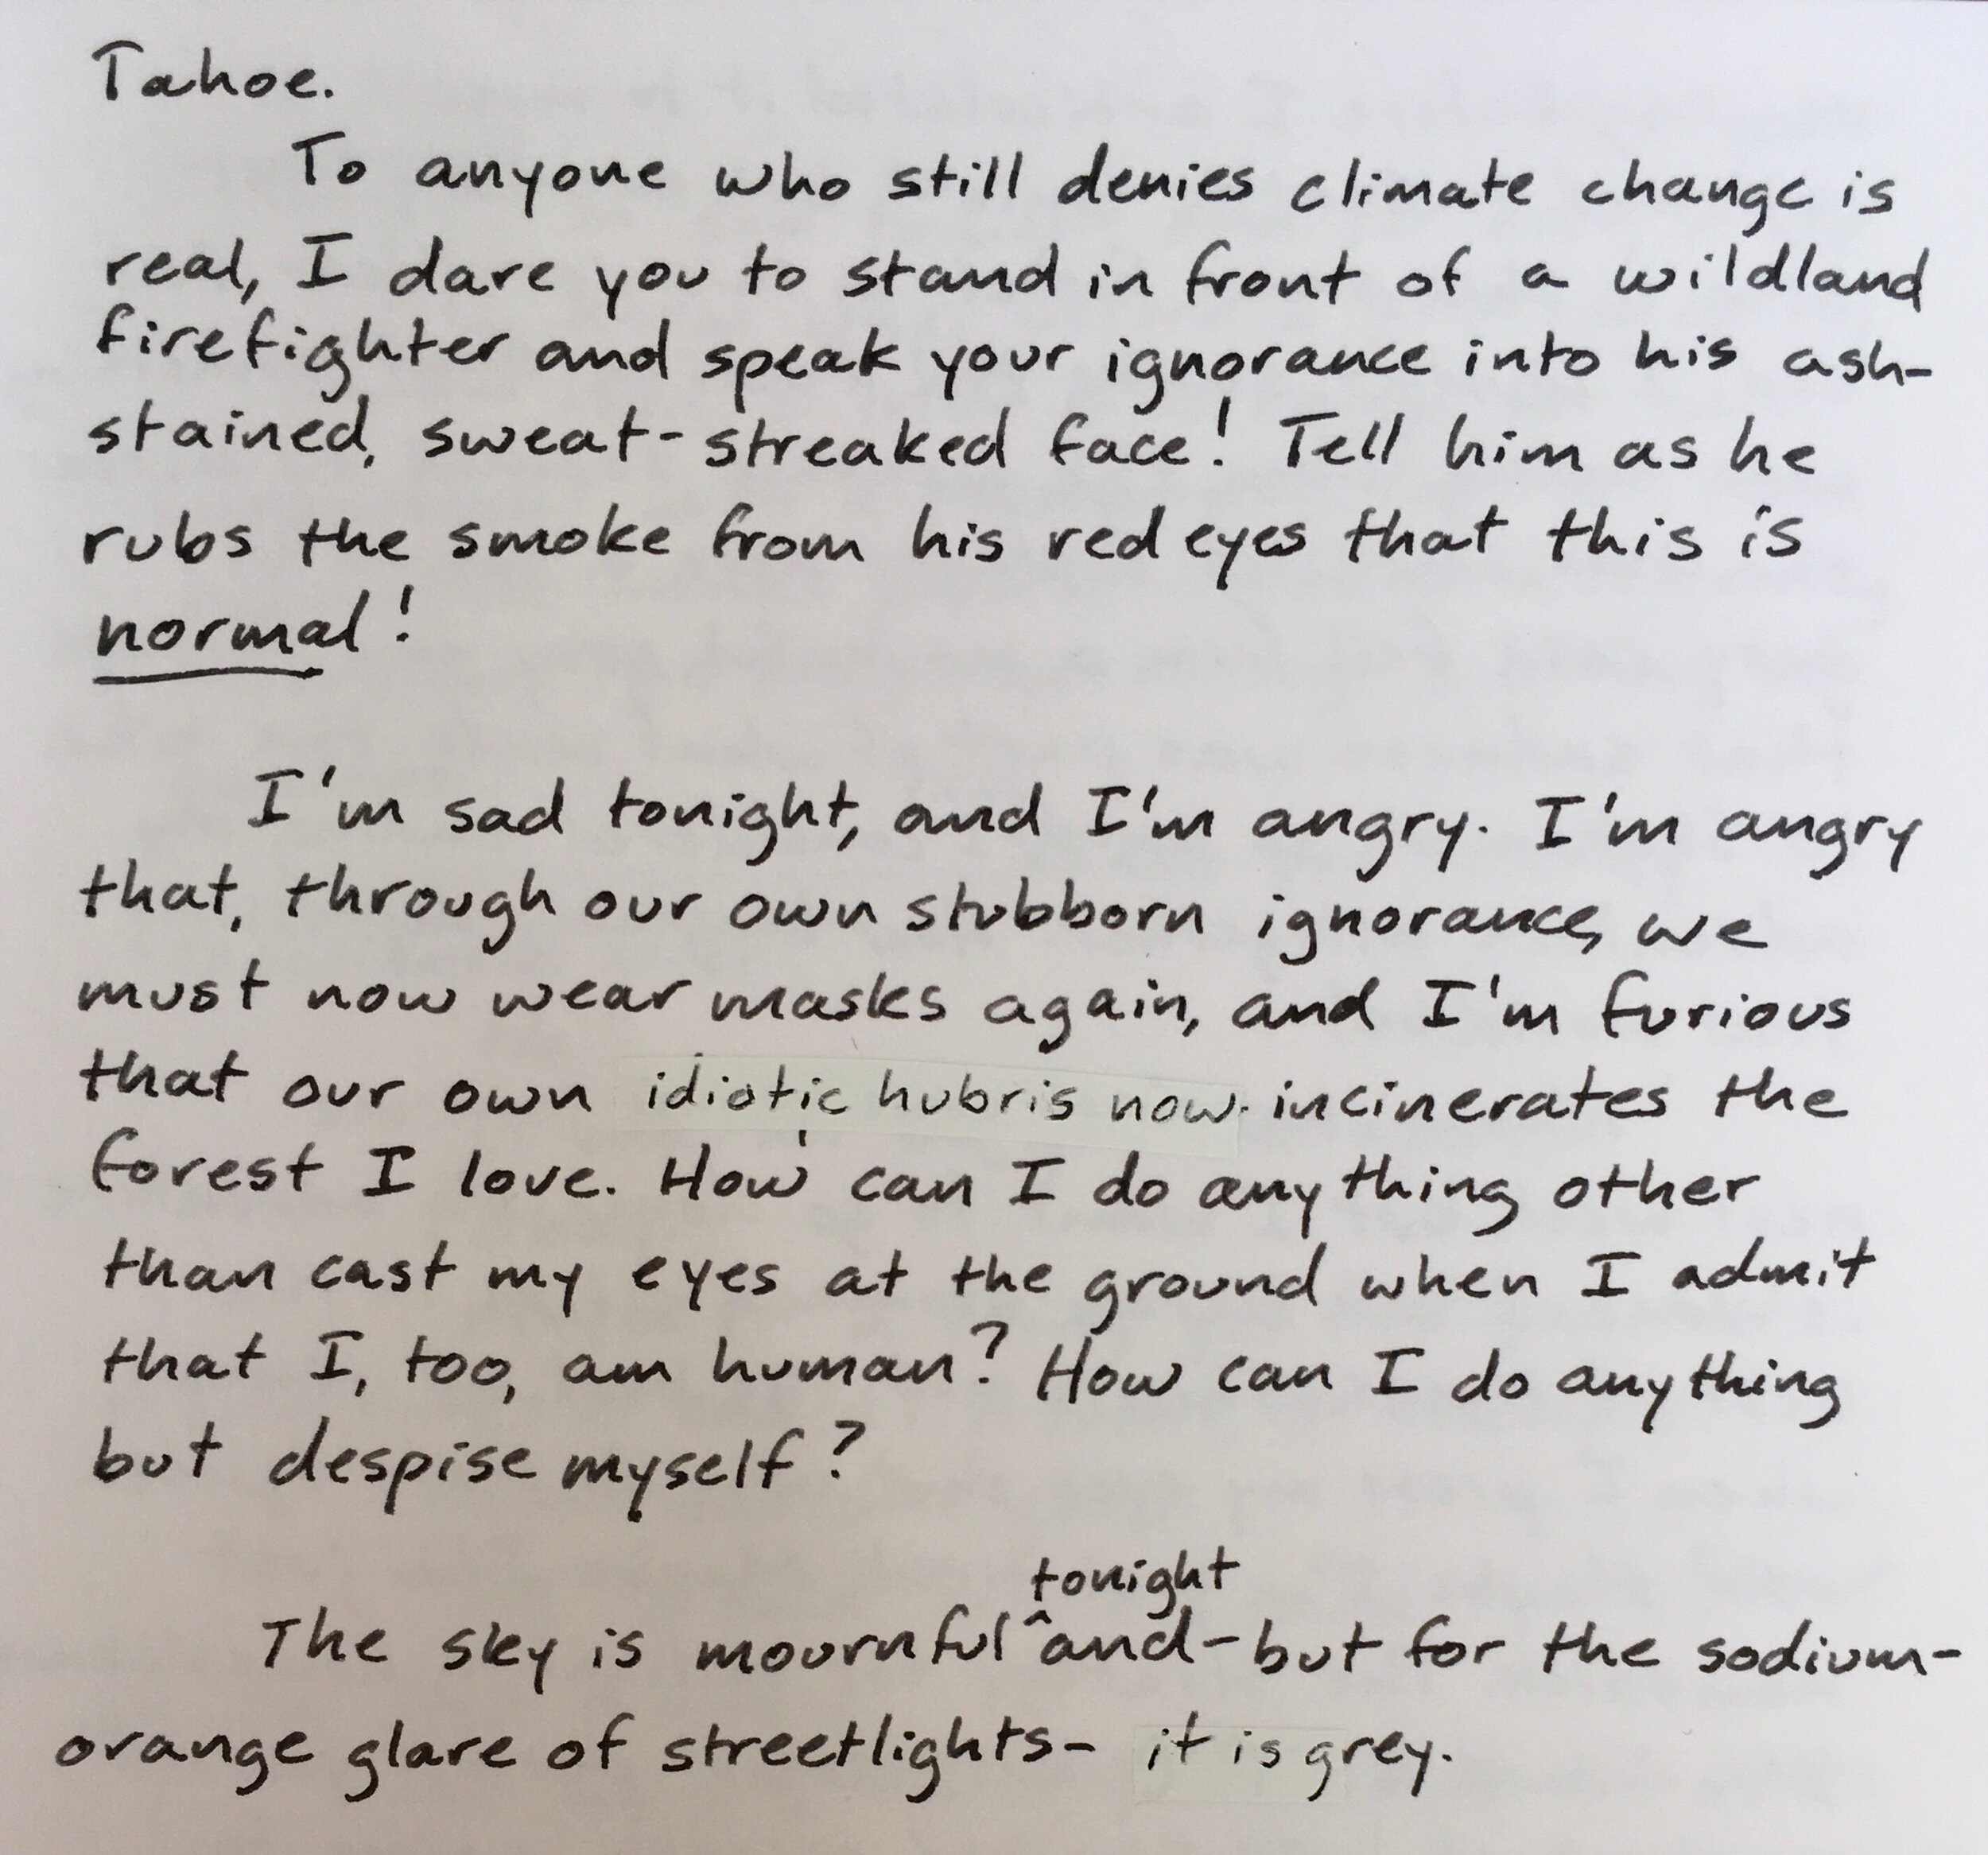 Tahoe.
To anyone who still denies climate change is
real, I dare you to stand in front of a wildland
firefighter and speak your ignorance into his ash-
stained, sweat-streaked face! Tell him as he
rubs the smoke from his red eyes that this is
normal!
I'm sad tonight, and I'm angry. I'm angry
that, through our own stubborn ignorance, we
must now wear masks again, and I'm furious
that our own idiotic hubris now incinerates the
forest I love. How can I do anything other
than cast my eyes at the ground when I admit
that I, too, am human? How can I do anything
but despise myself?
tonight
The sky is mournful ^ and - but for the sodium-
orange glare of streetlights - it is grey.